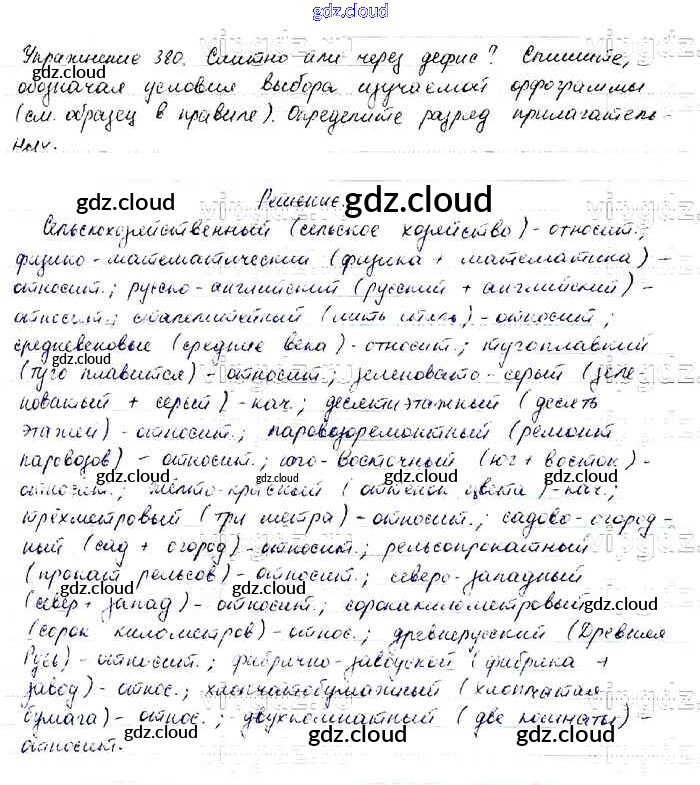 gdz.cloud
Упражнение 380. Слитно или через дефис? Спишите,
обозначая условия выбора изучаемой орфограммы
(см. образец в правиле). Определите разряд прилагатель-
ных.
Решение.
Сельскохозяйственный (сельское хозяйство) - относит.;
физико-математический (физика + математика) -
относит.; русско-английский (русский + английский) -
относит.; сталелитейный (лить сталь) - относит.;
средневековые (средние века) - относит.; тугоплавкий
(туго плавится) - относит.; зеленовато-серый (зеле-
новатый + серый) - кач.; десятиэтажный (десять
этажей) - относит.; паровозоремонтный (ремонт
паровозов) - относит.; юго-восточный (юг + восток) -
относит.; жёлто-красный (оттенок цвета) - кач.;
трёхметровый (три метра) - относит.; садово-огород-
ный (сад + огород) - относит.; рельсопрокатный
(прокат рельсов) - относит.; северо-западный
(север + запад) - относит.; сорокакилометровый
(сорок километров) - относ.; древнерусский (Древняя
Русь) - относит.; фабрично-заводской (фабрика +
завод) - относ.; хлопчатобумажный (хлопчатая
бумага) - относ.; двухкомнатный (две комнаты) -
относит.